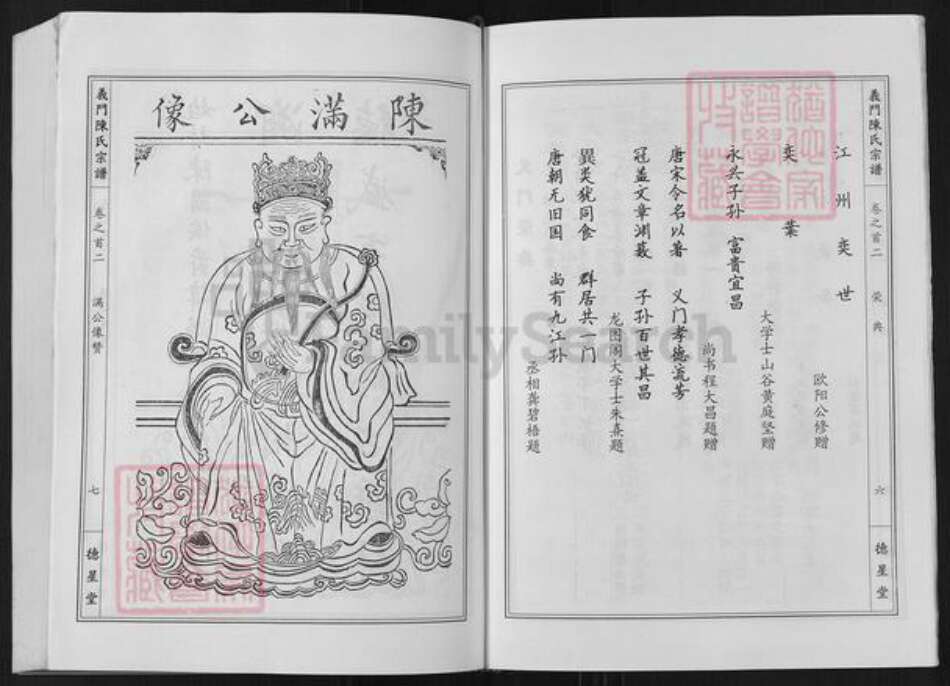 江州奕世
欧阳公修赠
奕葉
大学士山谷黄庭坚赠
永兴子孙 富貴宜昌
尚书程大昌题赠
唐宋令名以著 义门孝德流芳
冠盖文章渊薮 子孙百世其昌
龙图阁大学士朱熹题
異类犹同食 群居共一门
唐朝无旧国 尚有九江孙
丞相龚碧梧题
義門陳氏宗譜
卷之首二
荣典
六
德星堂
陳滿公像
義門陳氏宗譜
卷之首二
满公像赞
七
德星堂
FamilySearch